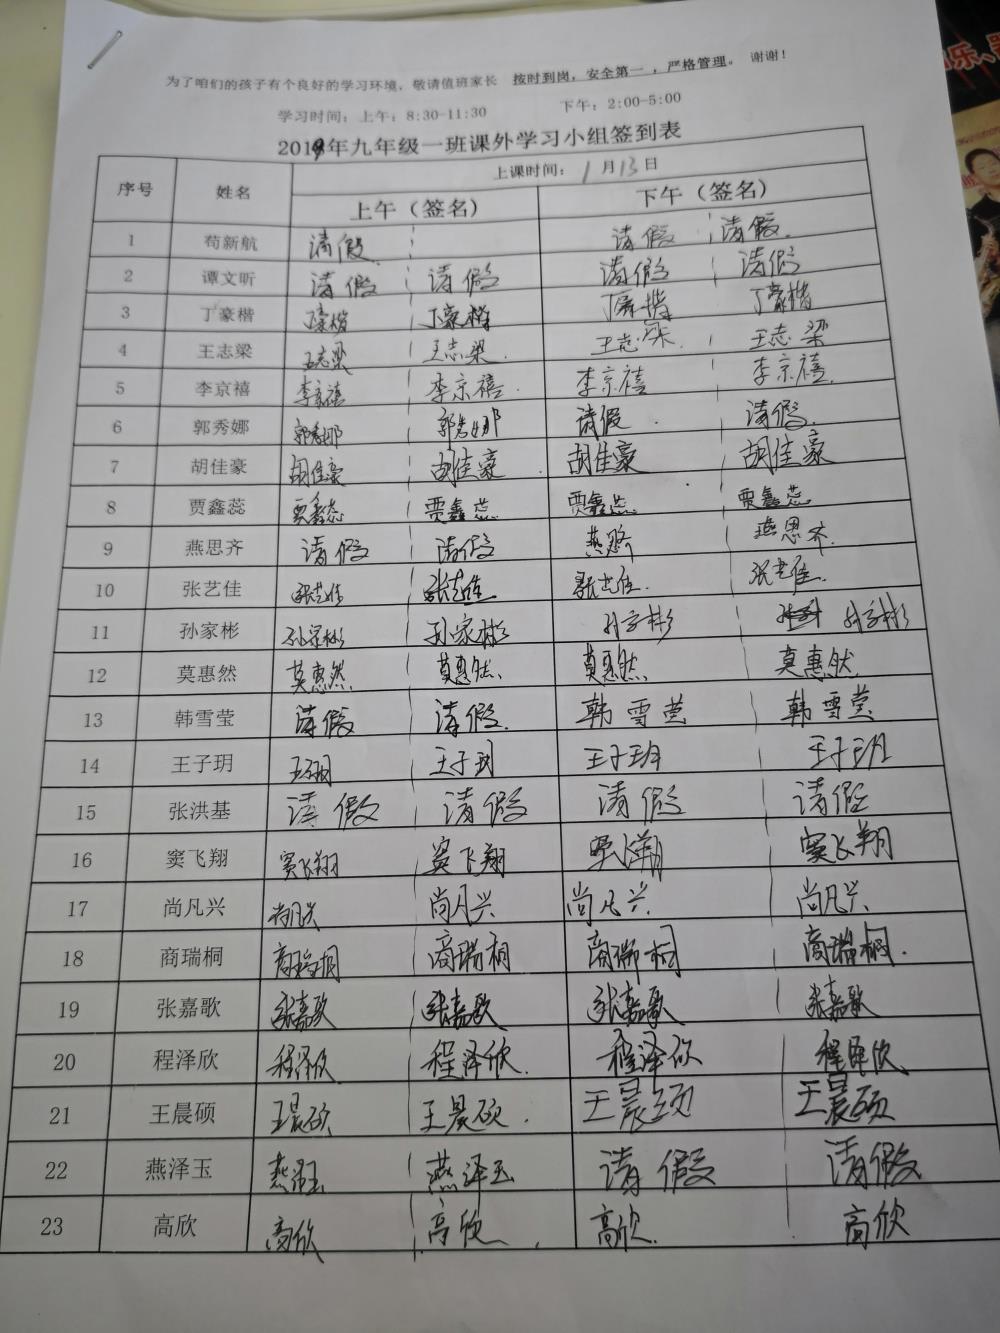 为了咱们的孩子有个良好的学习环境，敬请值班家长 按时到岗，安全第一，严格管理。 谢谢！
学习时间：上午：8:30-11:30 下午：2:00-5:00
2019年九年级一班课外学习小组签到表
序号 姓名 上课时间：1月13日
上午（签名） 下午（签名）
1 苟新航 请假 请假 请假
2 谭文昕 请假 请假 请假 请假
3 丁豪楷 丁豪楷 丁豪楷 丁豪楷 丁豪楷
4 王志梁 王志梁 王志梁 王志梁 王志梁
5 李京禧 李京禧 李京禧 李京禧 李京禧
6 郭秀娜 郭秀娜 郭秀娜 请假 请假
7 胡佳豪 胡佳豪 胡佳豪 胡佳豪 胡佳豪
8 贾鑫蕊 贾鑫蕊 贾鑫蕊 贾鑫蕊 贾鑫蕊
9 燕思齐 请假 请假 燕思齐 燕思齐
10 张艺佳 张艺佳 张艺佳 张艺佳 张艺佳
11 孙家彬 孙家彬 孙家彬 孙家彬 孙家彬
12 莫惠然 莫惠然 莫惠然 莫惠然 莫惠然
13 韩雪莹 请假 请假 韩雪莹 韩雪莹
14 王子玥 王子玥 王子玥 王子玥 王子玥
15 张洪基 请假 请假 请假 请假
16 窦飞翔 窦飞翔 窦飞翔 窦飞翔 窦飞翔
17 尚凡兴 尚凡兴 尚凡兴 尚凡兴 尚凡兴
18 商瑞桐 商瑞桐 商瑞桐 商瑞桐 商瑞桐
19 张嘉歌 张嘉歌 张嘉歌 张嘉歌 张嘉歌
20 程泽欣 程泽欣 程泽欣 程泽欣 程泽欣
21 王晨硕 王晨硕 王晨硕 王晨硕 王晨硕
22 燕泽玉 燕泽玉 燕泽玉 请假 请假
23 高欣 高欣 高欣 高欣 高欣